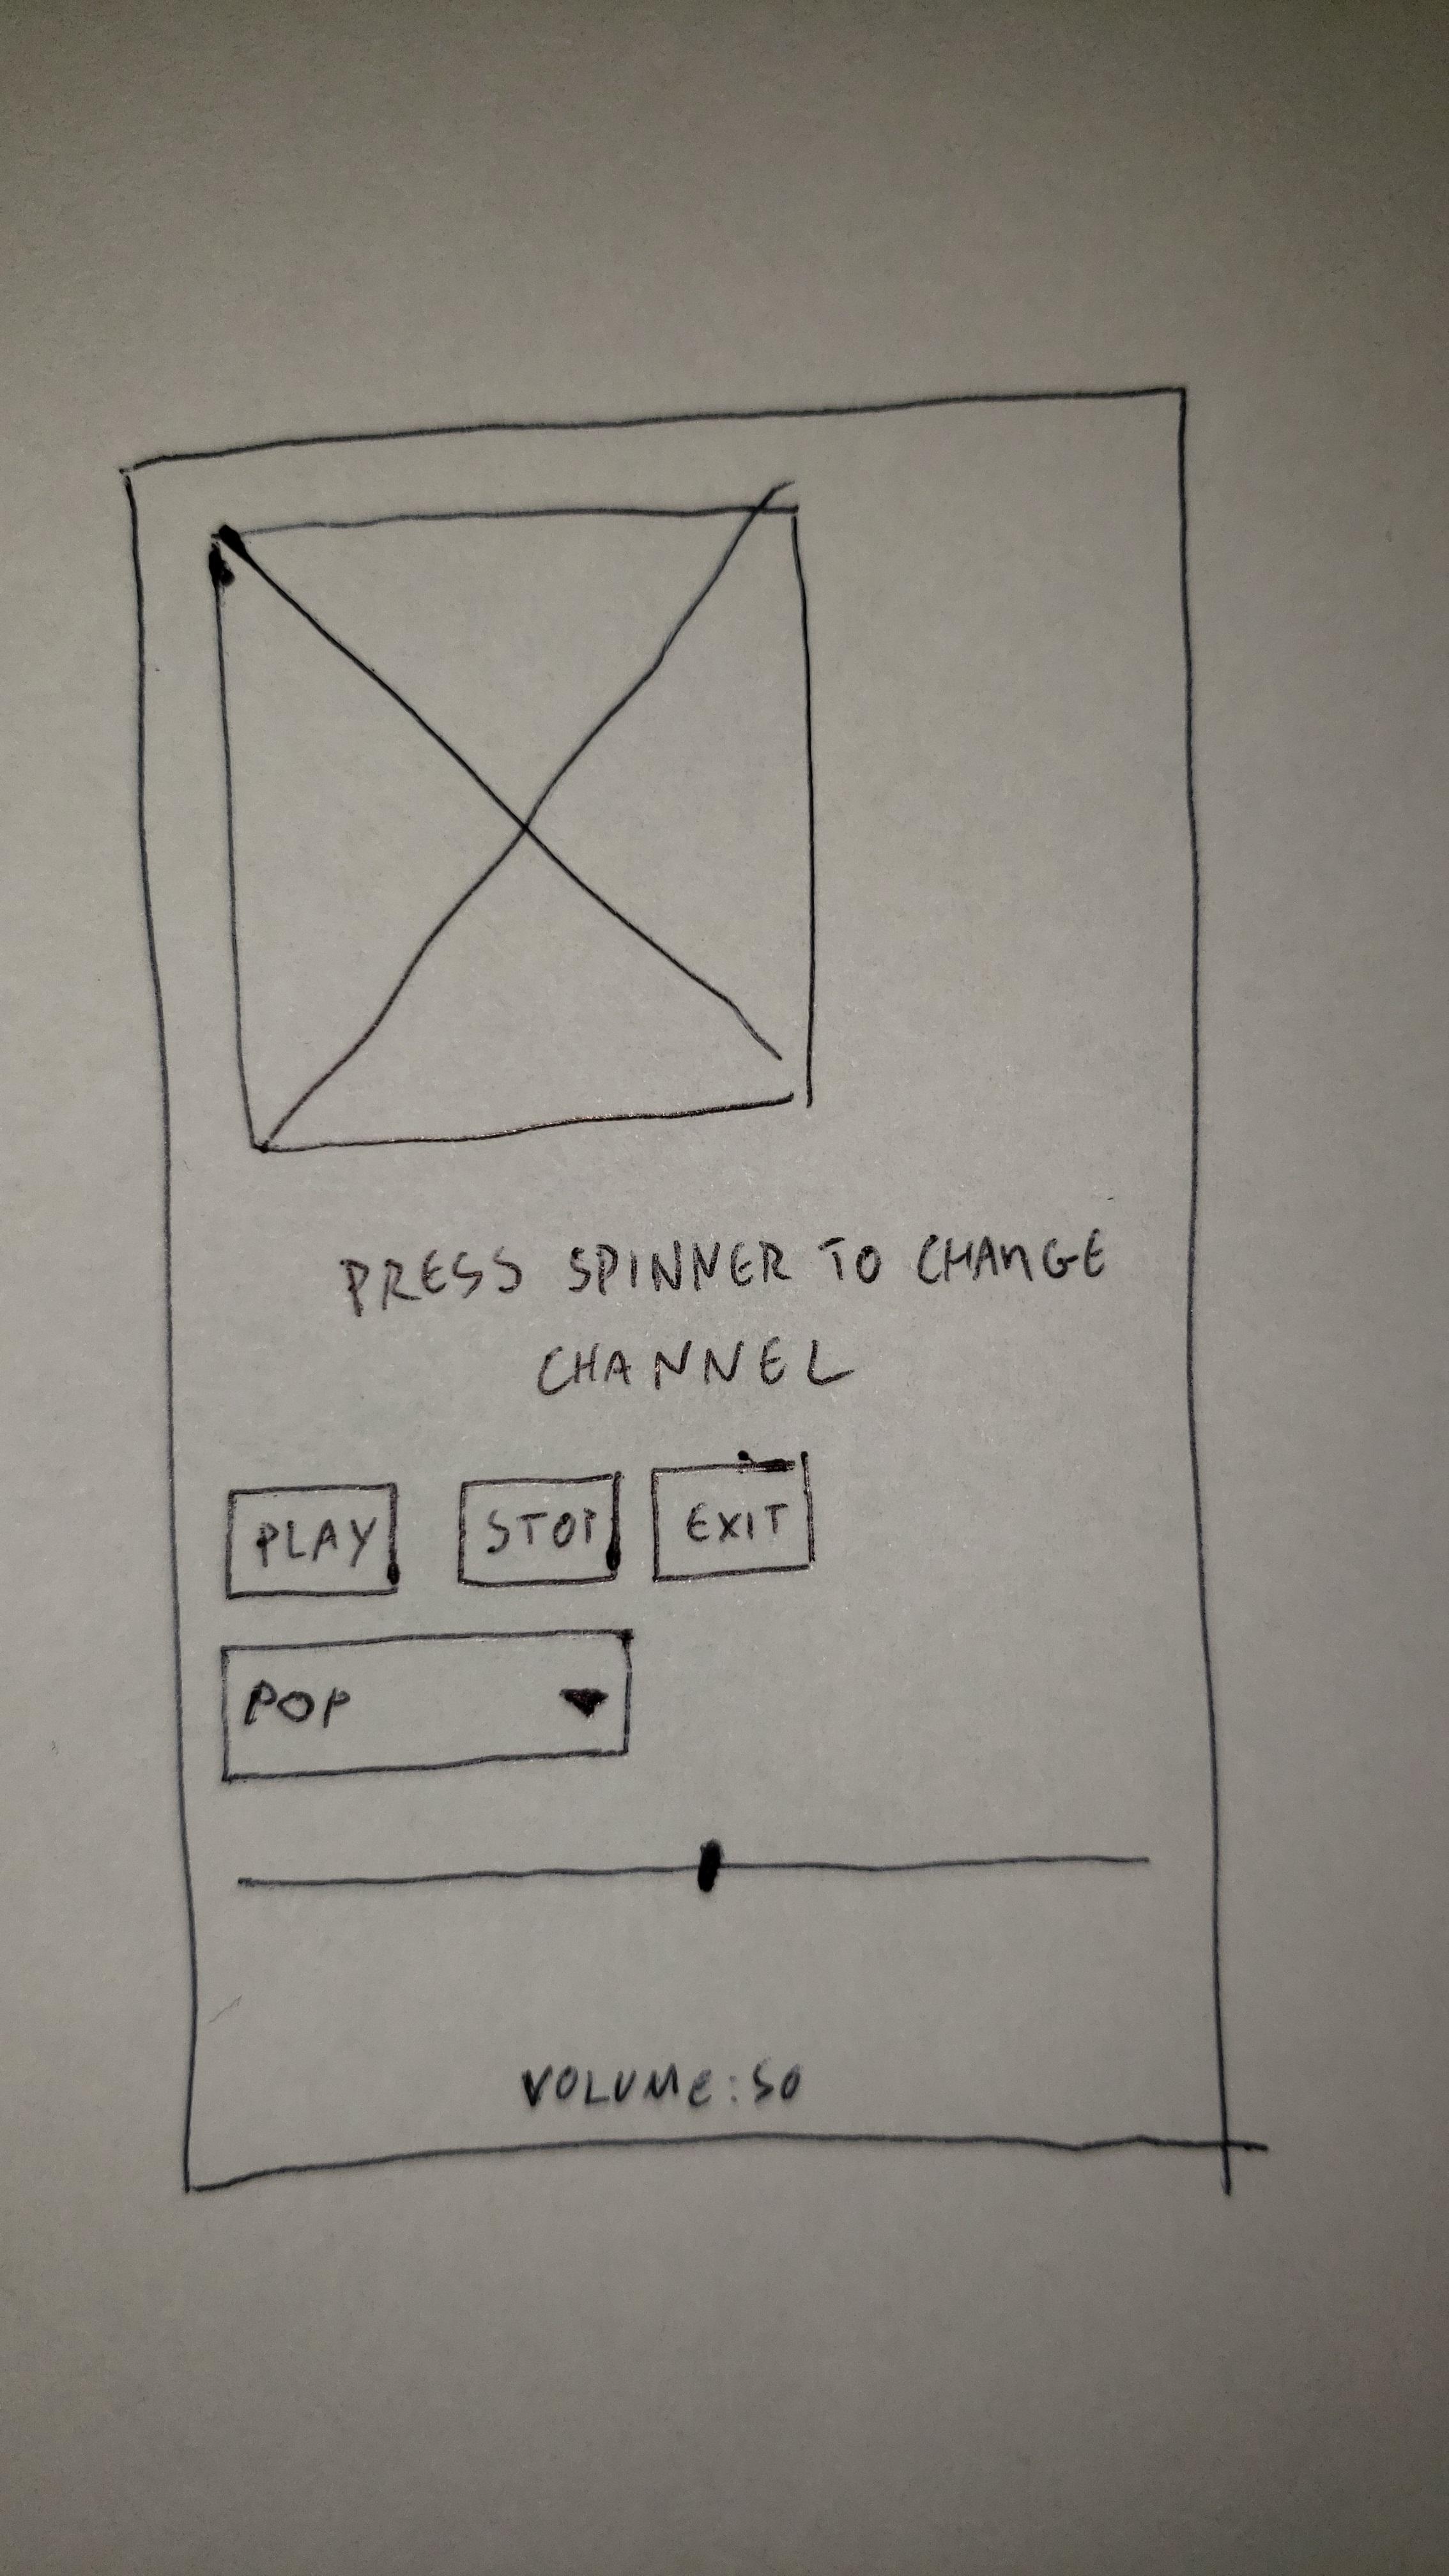 PRESS SPINNER TO CHANGE
CHANNEL
PLAY STOP EXIT
POP
VOLUME:50